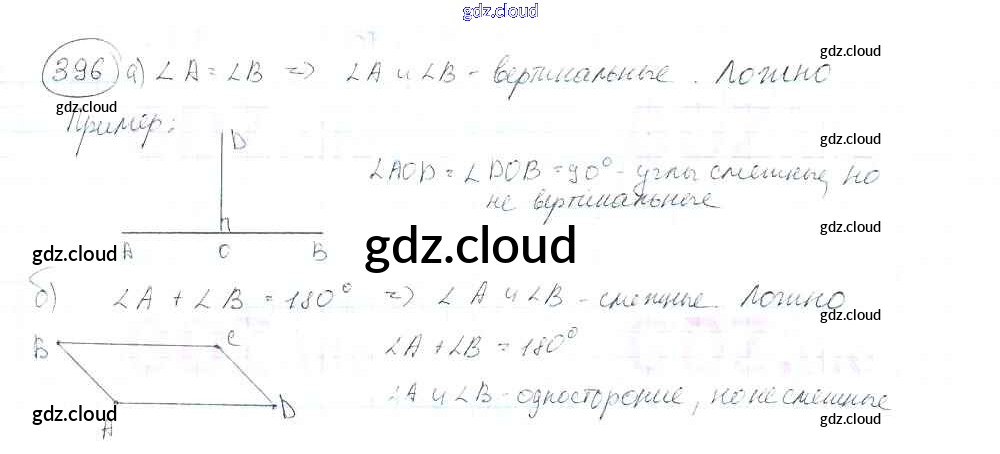 gdz.cloud
396 а) ∠A = ∠B => ∠A и ∠B - вертикальные. Ложно
gdz.cloud
gdz.cloud
Пример:
D
gdz.cloud
∠AOD = ∠DOB = 90° - углы смежные, но
не вертикальные
gdz.cloud
A O B
gdz.cloud
gdz.cloud
б) ∠A + ∠B = 180° => ∠A и ∠B - смежные. Ложно
gdz.cloud
B C
∠A + ∠B = 180°
∠A и ∠B - односторонние, но не смежные
A D
gdz.cloud
gdz.cloud